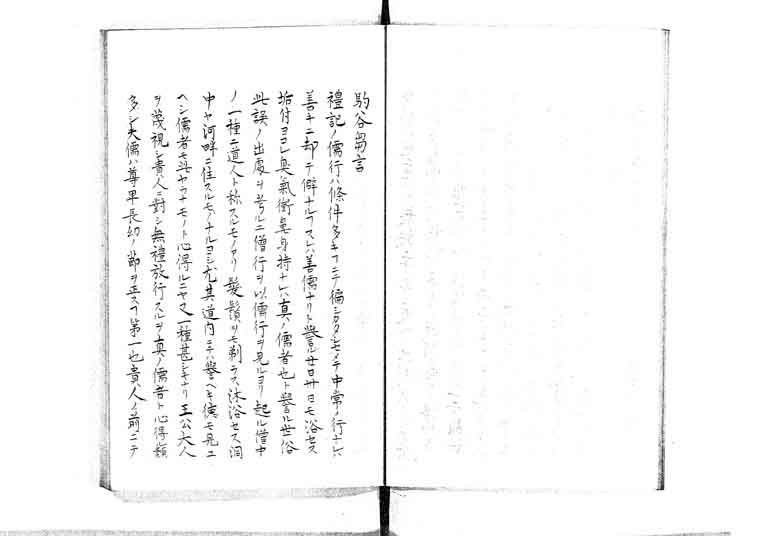 芻言
禮記ノ儒行ハ條件多キ中常ノ行ナレハ
善キニ却テ僻ナルヿスレハ善儒ナリト譽ル廿日卅日モ浴セス
垢付ヨコレ臭氣衝鼻身持ナレハ真ノ儒者也ト譽ル世俗
此誤ノ出處ヲ考ルニ僧行ヲ以儒行ヲ見ルヨリ起ル僧中
ノ一種ニ道人ト称スルモノアリ髮鬚ヲモ剃ラス沐浴セス洞
中ヤ河畔ニ住スルモノナルヨシ尤其道内ニハ譽ヘキ徳モ見ユ
ヘシ儒者モ此ヤウナモノト心得ルニヤ又一種甚シキナリ王公大人
ヲ蔑視シ貴人ニ對シ無禮放行スルヲ真ノ儒者ト心得類
多シ夫儒ハ尊卑長幼ノ節ヲ正スヿ第一也貴人ノ前ニテ